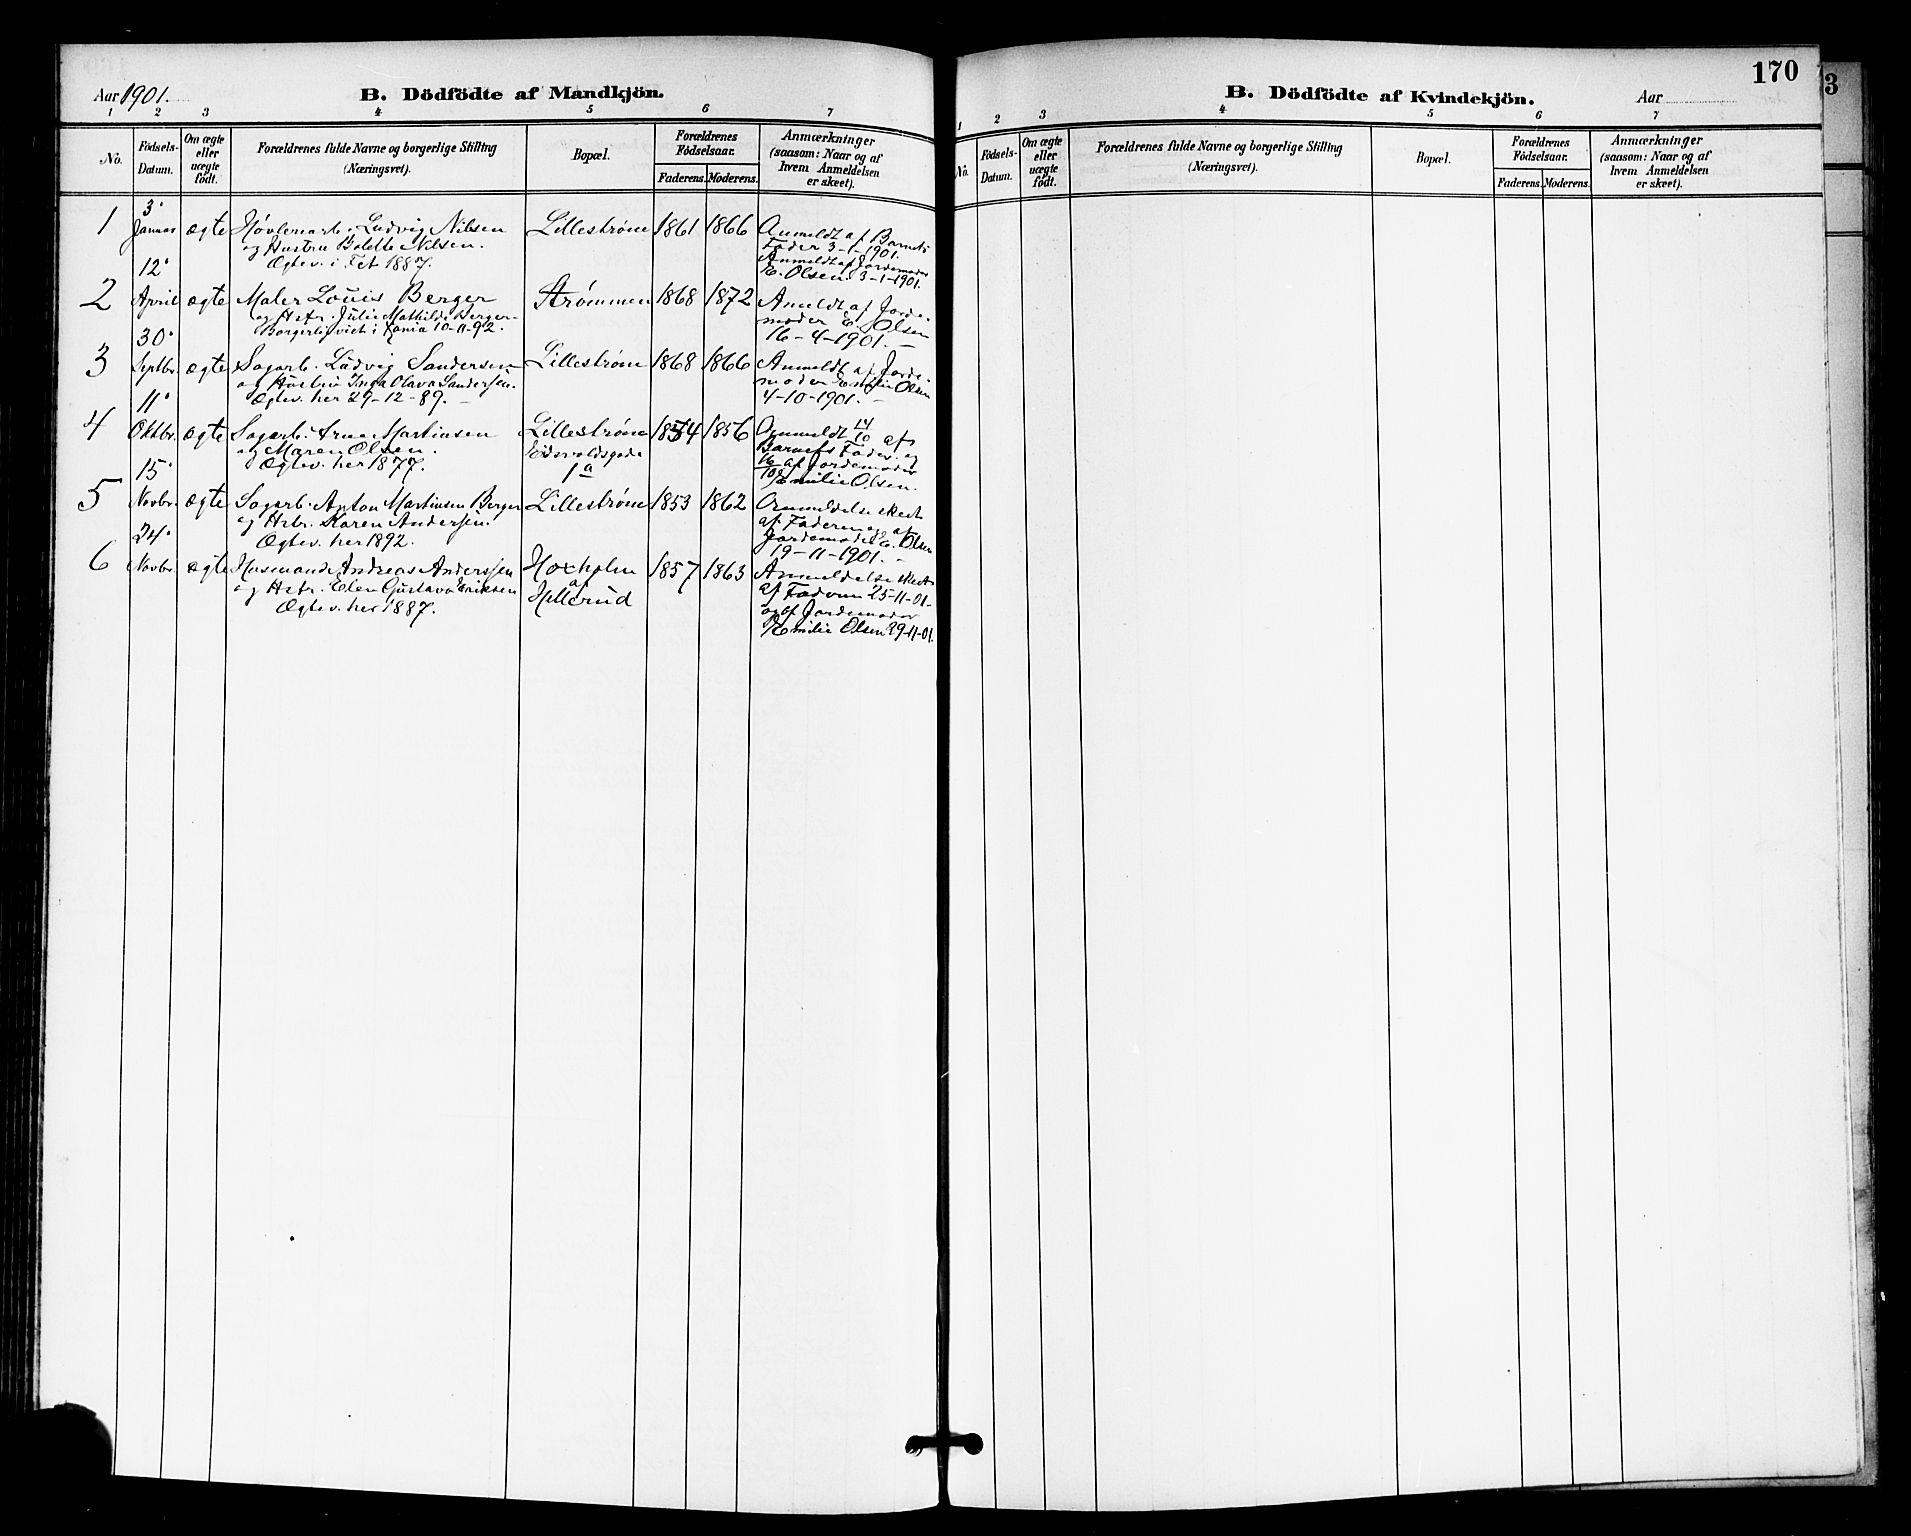 Aar 1901.
B. Dödfödte af Mandkjön.
1 2 3 4 5 6 7
No.
Födsels-Datum.
Om ægte eller uægte födt.
Forældrenes fulde Navne og borgerlige Stilling (Næringsvei).
Bopæl.
Forældrenes Födselsaar.
Faderens. Moderens.
Anmærkninger (saasom: Naar og af hvem Anmeldelsen er skeet).
1 3. Januar ægte Høvlenarb. Ludvig Nilsen Lillestrøm 1861 1866 Anmeldt af Barnets
og Hustru Bolette Nilsen. Fader 3-1-1901.
Ægtev. i Fet 1887. Anmeldt af Jordemoder
E. Olsen. 3-1-1901.
2 12. April ægte Maler Louis Berger Strømmen 1868 1872 Anmeldt af Jorde-
og Hstr. Julie Mathilde Berger. moder E. Olsen
Borgerlig viet i Xania 10-11-92. 16-4-1901.
3 30. Septbr. ægte Sagarb. Ludvig Sandersen Lillestrøm 1868 1866 Anmeldt af Jorde-
og Hustru Inga Olava Sandersen. moder Emilie Olsen
Ægtev. her 29-12-89. 4-10-1901.
4 11. Oktbr. ægte Sagarb. Arne Martinsen Lillestrøm 1854 1856 Anmeldt 14/10 af
og Maren Olsen. Eidsvoldsgade Barnets Fader og
Ægtev. her 1877. 1a 16/10 af Jordemoder
Emilie Olsen.
5 15. Novbr. ægte Sagarb. Anton Martinsen Berger Lillestrøm 1853 1862 Anmeldelse skeet
og Hstr. Karen Andersen. af Faderen og af
Ægtev. her 1892. Jordemoder E. Olsen
19-11-1901.
6 24. Novbr. ægte Husmand Andreas Anderssen Hoxholm 1857 1863 Anmeldelse skeet
og Hstr. Elen Gustava Eriksen af af Faderen 25-11-01.
Ægtev. her 1887. Hellerud og af Jordemoder
Emilie Olsen 29-11-01.
170
3
B. Dödfödte af Kvindekjön.
Aar
1 2 3 4 5 6 7
No.
Födsels-Datum.
Om ægte eller uægte födt.
Forældrenes fulde Navne og borgerlige Stilling (Næringsvei).
Bopæl.
Forældrenes Födselsaar.
Faderens. Moderens.
Anmærkninger (saasom: Naar og af hvem Anmeldelsen er skeet).